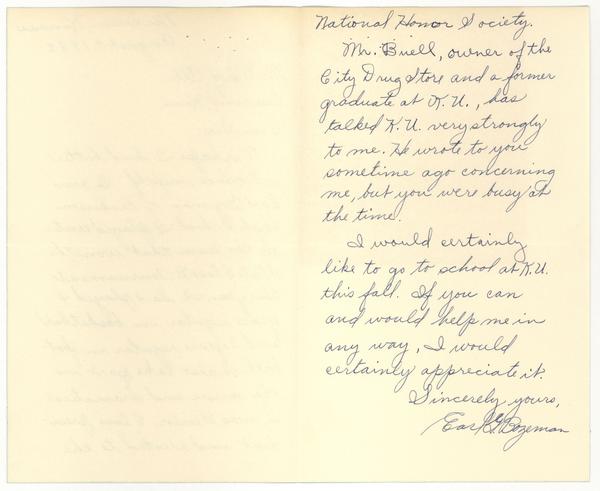 National Honor Society.
Mr. Buell, owner of the
City Drug Store and a former
graduate at K.U., has
talked K.U. very strongly
to me. He wrote to you
sometime ago concerning
me, but you were busy at
the time.
I would certainly
like to go to school at K.U.
this fall. If you can
and would help me in
any way, I would
certainly appreciate it.
Sincerely yours,
Bozeman